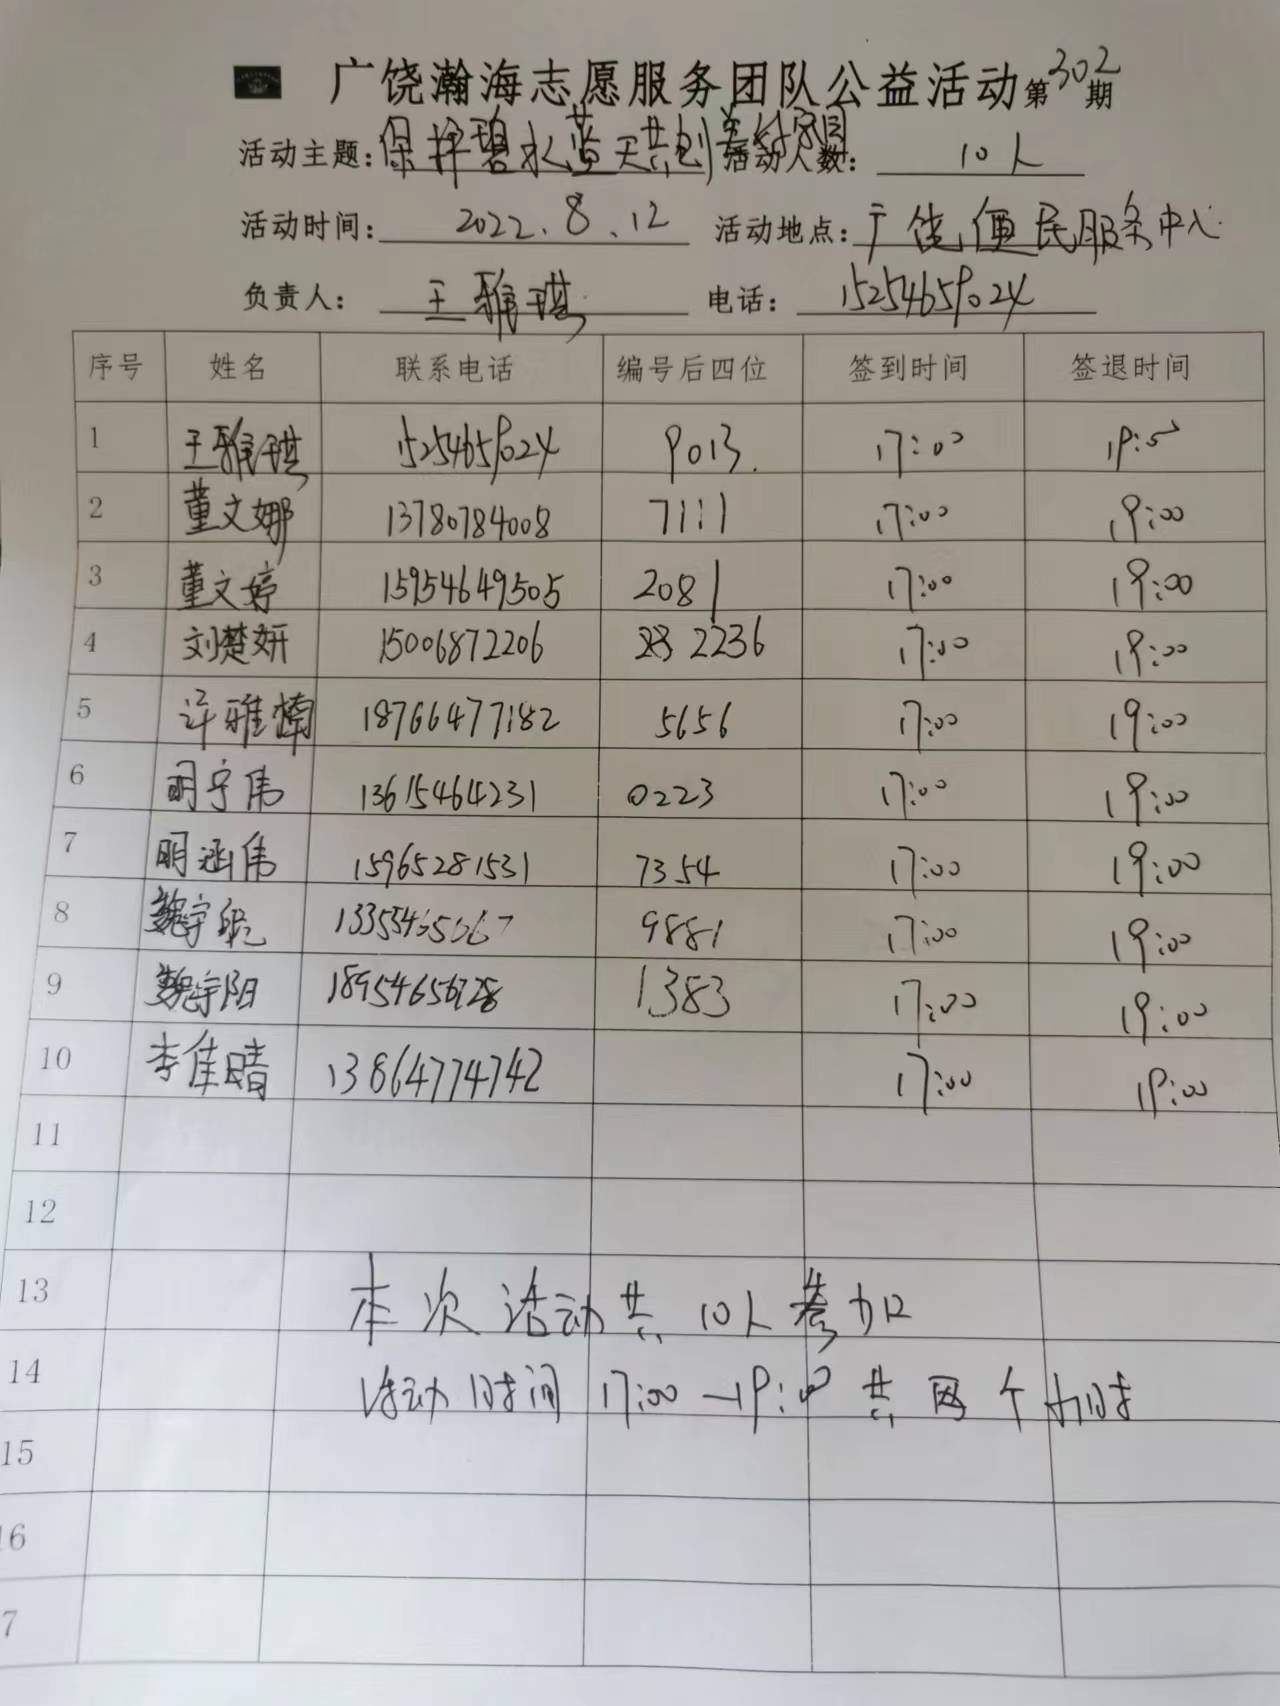 广饶瀚海志愿服务团队公益活动第302期
活动主题：保护碧水蓝天共创美好家园 活动人数：10人
活动时间：2022.8.12 活动地点：广饶便民服务中心
负责人：王雅琪 电话：15254659024
序号 姓名 联系电话 编号后四位 签到时间 签退时间
1 王雅琪 15254659024 9013. 17:00 19:00
2 董文娜 13780784008 7111 17:00 19:00
3 董文婷 15954649505 2081 17:00 19:00
4 刘楚妍 15006872206 2236 17:00 19:00
5 许雅楠 18766477182 5656 17:00 19:00
6 明宁伟 13615464231 0223 17:00 19:00
7 明涵伟 15965281531 7354 17:00 19:00
8 魏宇 9881 17:00 19:00
9 魏宇阳 1383 17:00 19:00
10 李佳晴 13864774742 17:00 19:00
11
12
13 本次活动共10人参加
14 活动时间 17:00-19:00 共两个小时
15
16
7